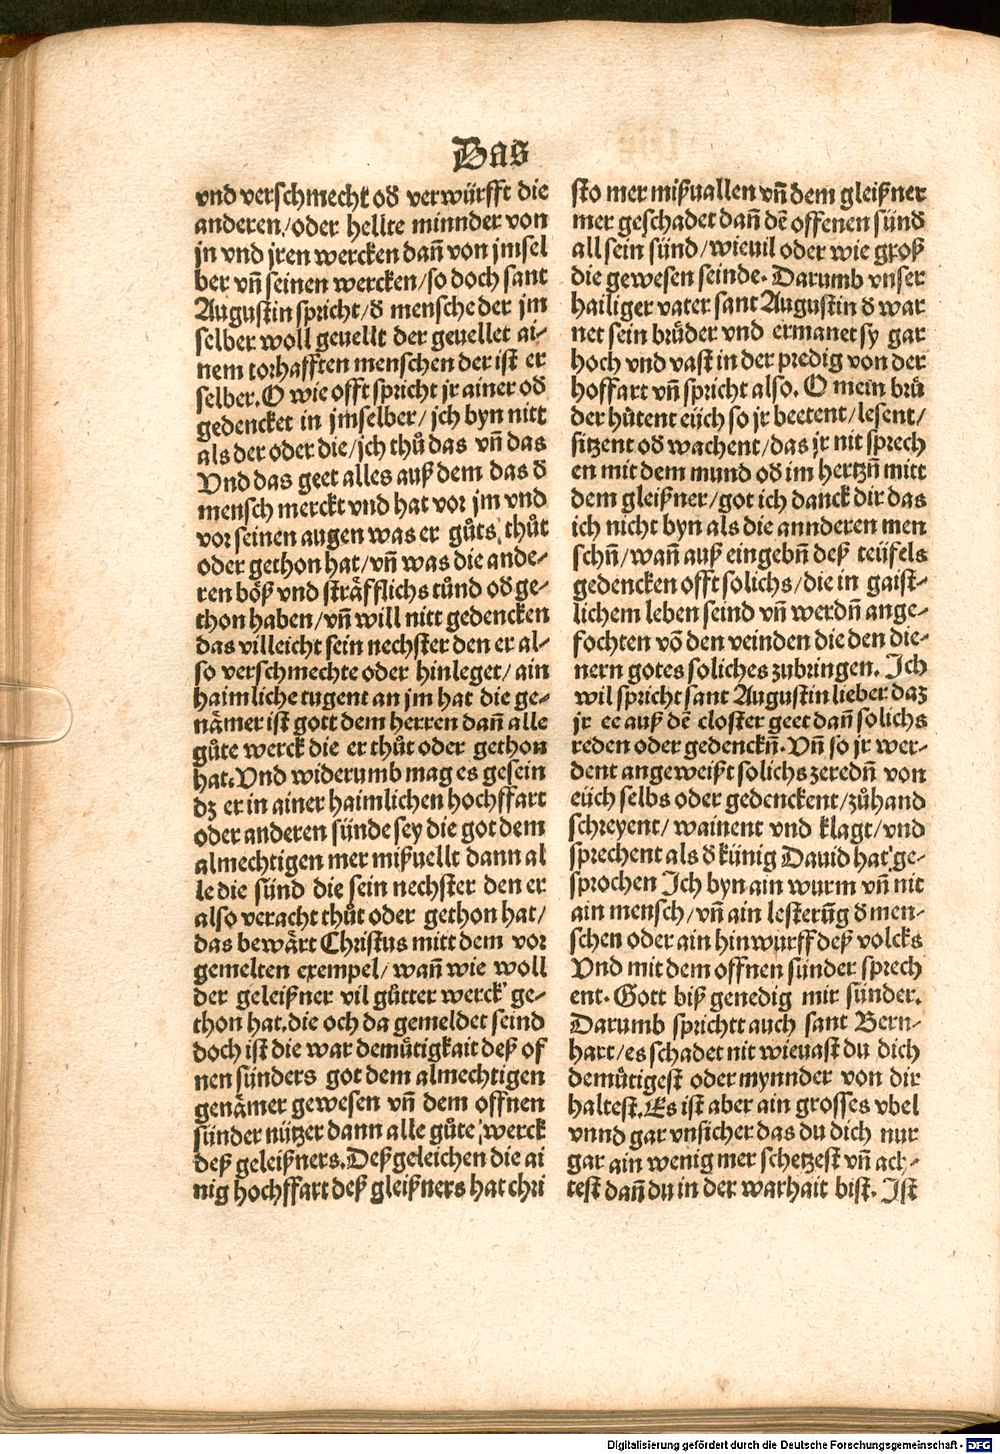 Das
vnd verschmecht od̄ verwürfft die
anderen/oder hellte minnder von
jn vnd jren wercken dañ von jmsel
ber vñ seinen wercken/so doch sant
Augustin spricht/d̄ mensche der jm
selber woll geuellt der geuellet ai-
nem torhafften menschen der ist er
selber. O wie offt spricht jr ainer od̄
gedencket in jmselber/ jch byn nitt
als der oder die/jch thů das vñ das
Vnd das geet alles auß dem das d̄
mensch merckt vnd hat vor jm vnd
vor seinen augen was er gůts, thůt
oder gethon hat/vñ was die ande-
ren böß vnd sträfflichs tůnd od̄ ge-
thon haben/vñ will nitt gedencken
das villeicht sein nechster den er al-
so verschmechte oder hinleget/ ain
haimliche tugent an jm hat die ge-
nämer ist gott dem herren dañ alle
gůte werck die er thůt oder gethon
hat. Vnd widerumb mag es gesein
dz er in ainer haimlichen hochffart
oder anderen sünde sey die got dem
almechtigen mer mißuellt dann al
le die sünd die sein nechster den er
also veracht thůt oder gethon hat/
das bewärt Christus mitt dem vor
gemelten exempel/ wañ wie woll
der geleißner vil gůtter werck ge-
thon hat. die och da gemeldet seind
doch ist die war demůtigkait deß of
nen sünders got dem almechtigen
genämer gewesen vñ dem offnen
sünder nützer dann alle gůte werck
deß geleißners. Deßgeleichen die ai
nig hochffart deß gleißners hat chri
sto mer mißuallen vñ dem gleißner
mer geschadet dañ dē offenen sünd̄
all sein sünd/wieuil oder wie groß
die gewesen seinde. Darumb vnser
hailiger vater sant Augustin d̄ war
net sein brůder vnd ermanet sy gar
hoch vnd vast in der predig von der
hoffart vñ spricht also. O mein brů
der hůtent eüch so jr beetent/lesent/
sitzent od̄ wachent/das jr nit sprech
en mit dem mund od̄ im hertzñ mitt
dem gleißner/got ich danck dir das
ich nicht byn als die annderen men
schñ/wañ auß eingebñ deß teüfels
gedencken offt solichs/die in gaist-
lichem leben seind vñ werdñ ange-
fochten vō den veinden die den die-
nern gotes soliches zubringen. Ich
wil spricht sant Augustin lieber daz
jr ee auß dē closter geet dañ solichs
reden oder gedenckñ. Vñ so jr wer-
dent angeweißt solichs zeredñ von
eüch selbs oder gedenckent/zůhand
schreyent/ wainent vnd klagt/vnd
sprechent als d̄ künig Dauid hat ge-
sprochen Ich byn ain wurm vñ nit
ain mensch/vñ ain lesterūg d̄ men-
schen oder ain hinwurff deß volcks
Vnd mit dem offnen sünder sprech
ent. Gott biß genedig mir sünder.
Darumb sprichtt auch sant Bern-
hart/es schadet nit wieuast du dich
demůtigest oder mynnder von dir
haltest. Es ist aber ain grosses vbel
vnnd gar vnsicher das du dich nur
gar ain wenig mer schetzest vñ ach-
test dañ du in der warhait bist. Ist
Digitalisierung gefördert durch die Deutsche Forschungsgemeinschaft - DFG